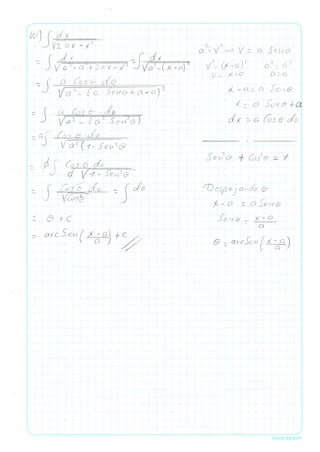 w) ∫ dx / √(2ax - x²)
= ∫ dx / √(a² - a² + 2ax - x²) = ∫ dx / √(a² - (x-a)²)
= ∫ a Cosθ dθ / √(a² - (a Senθ + a - a)²)
= ∫ a Cosθ dθ / √(a² - (a² Sen²θ))
= a∫ Cosθ dθ / √(a² (1 - Sen²θ))
= a∫ Cosθ dθ / a √(1 - Sen²θ)
= ∫ Cosθ dθ / √Cos²θ = ∫ dθ
= θ + c
= arc Sen( (x-a)/a ) + c //
a² - v² → v = a Senθ
v² = (x-a)² a² = a²
v = x-a a = a
x - a = a Senθ
x = a Senθ + a
dx = a Cosθ dθ
Sen²θ + Cos²θ = 1
Despejando θ
x - a = a Senθ
Senθ = (x-a)/a
θ = arc Sen( (x-a)/a )